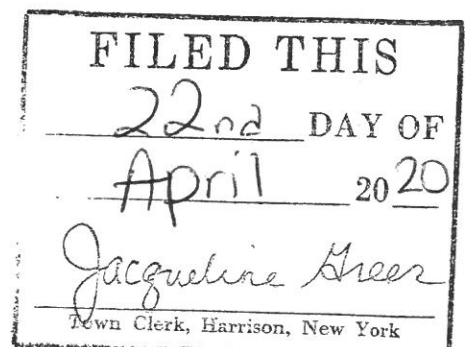 FILED THIS
22nd DAY OF
April 2020
Jacqueline Greer
Town Clerk, Harrison, New York